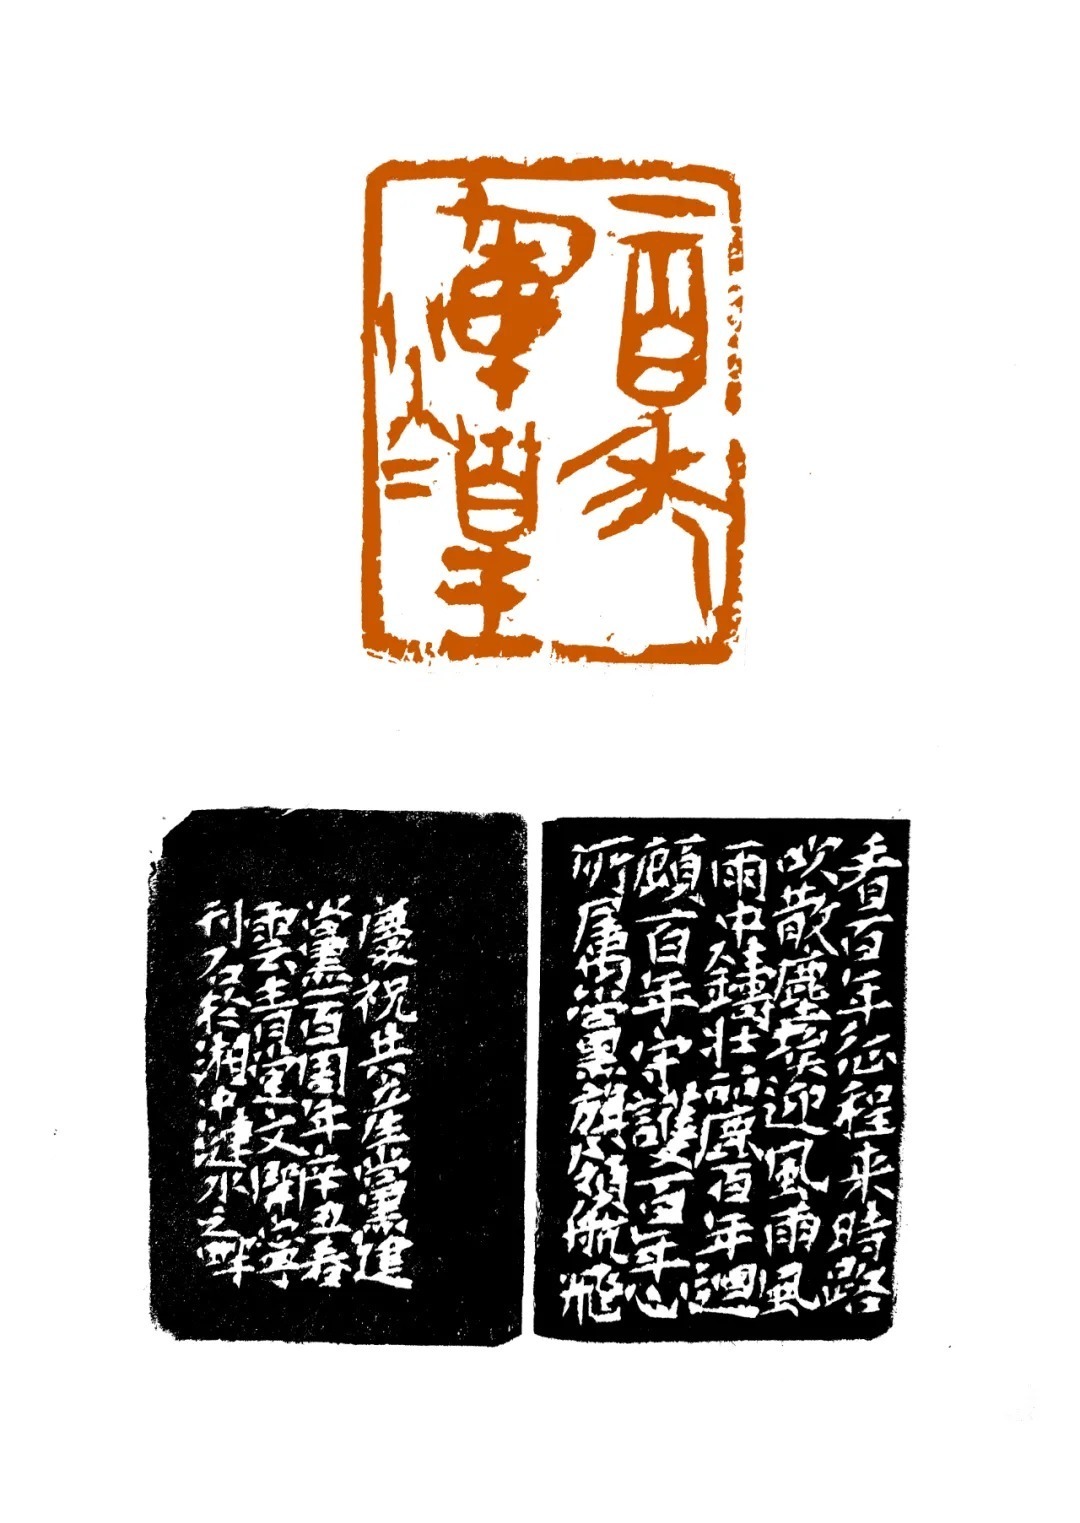 百年
輝煌
看百年征程来時路
吹散塵埃迎風雨風
雨中鑄壯麗百年迴
顧百年守護百年心
所屬黨旗領航飛
慶祝共產黨建
黨百周年辛丑春
雲文寧
刊石於湘中漣水之畔